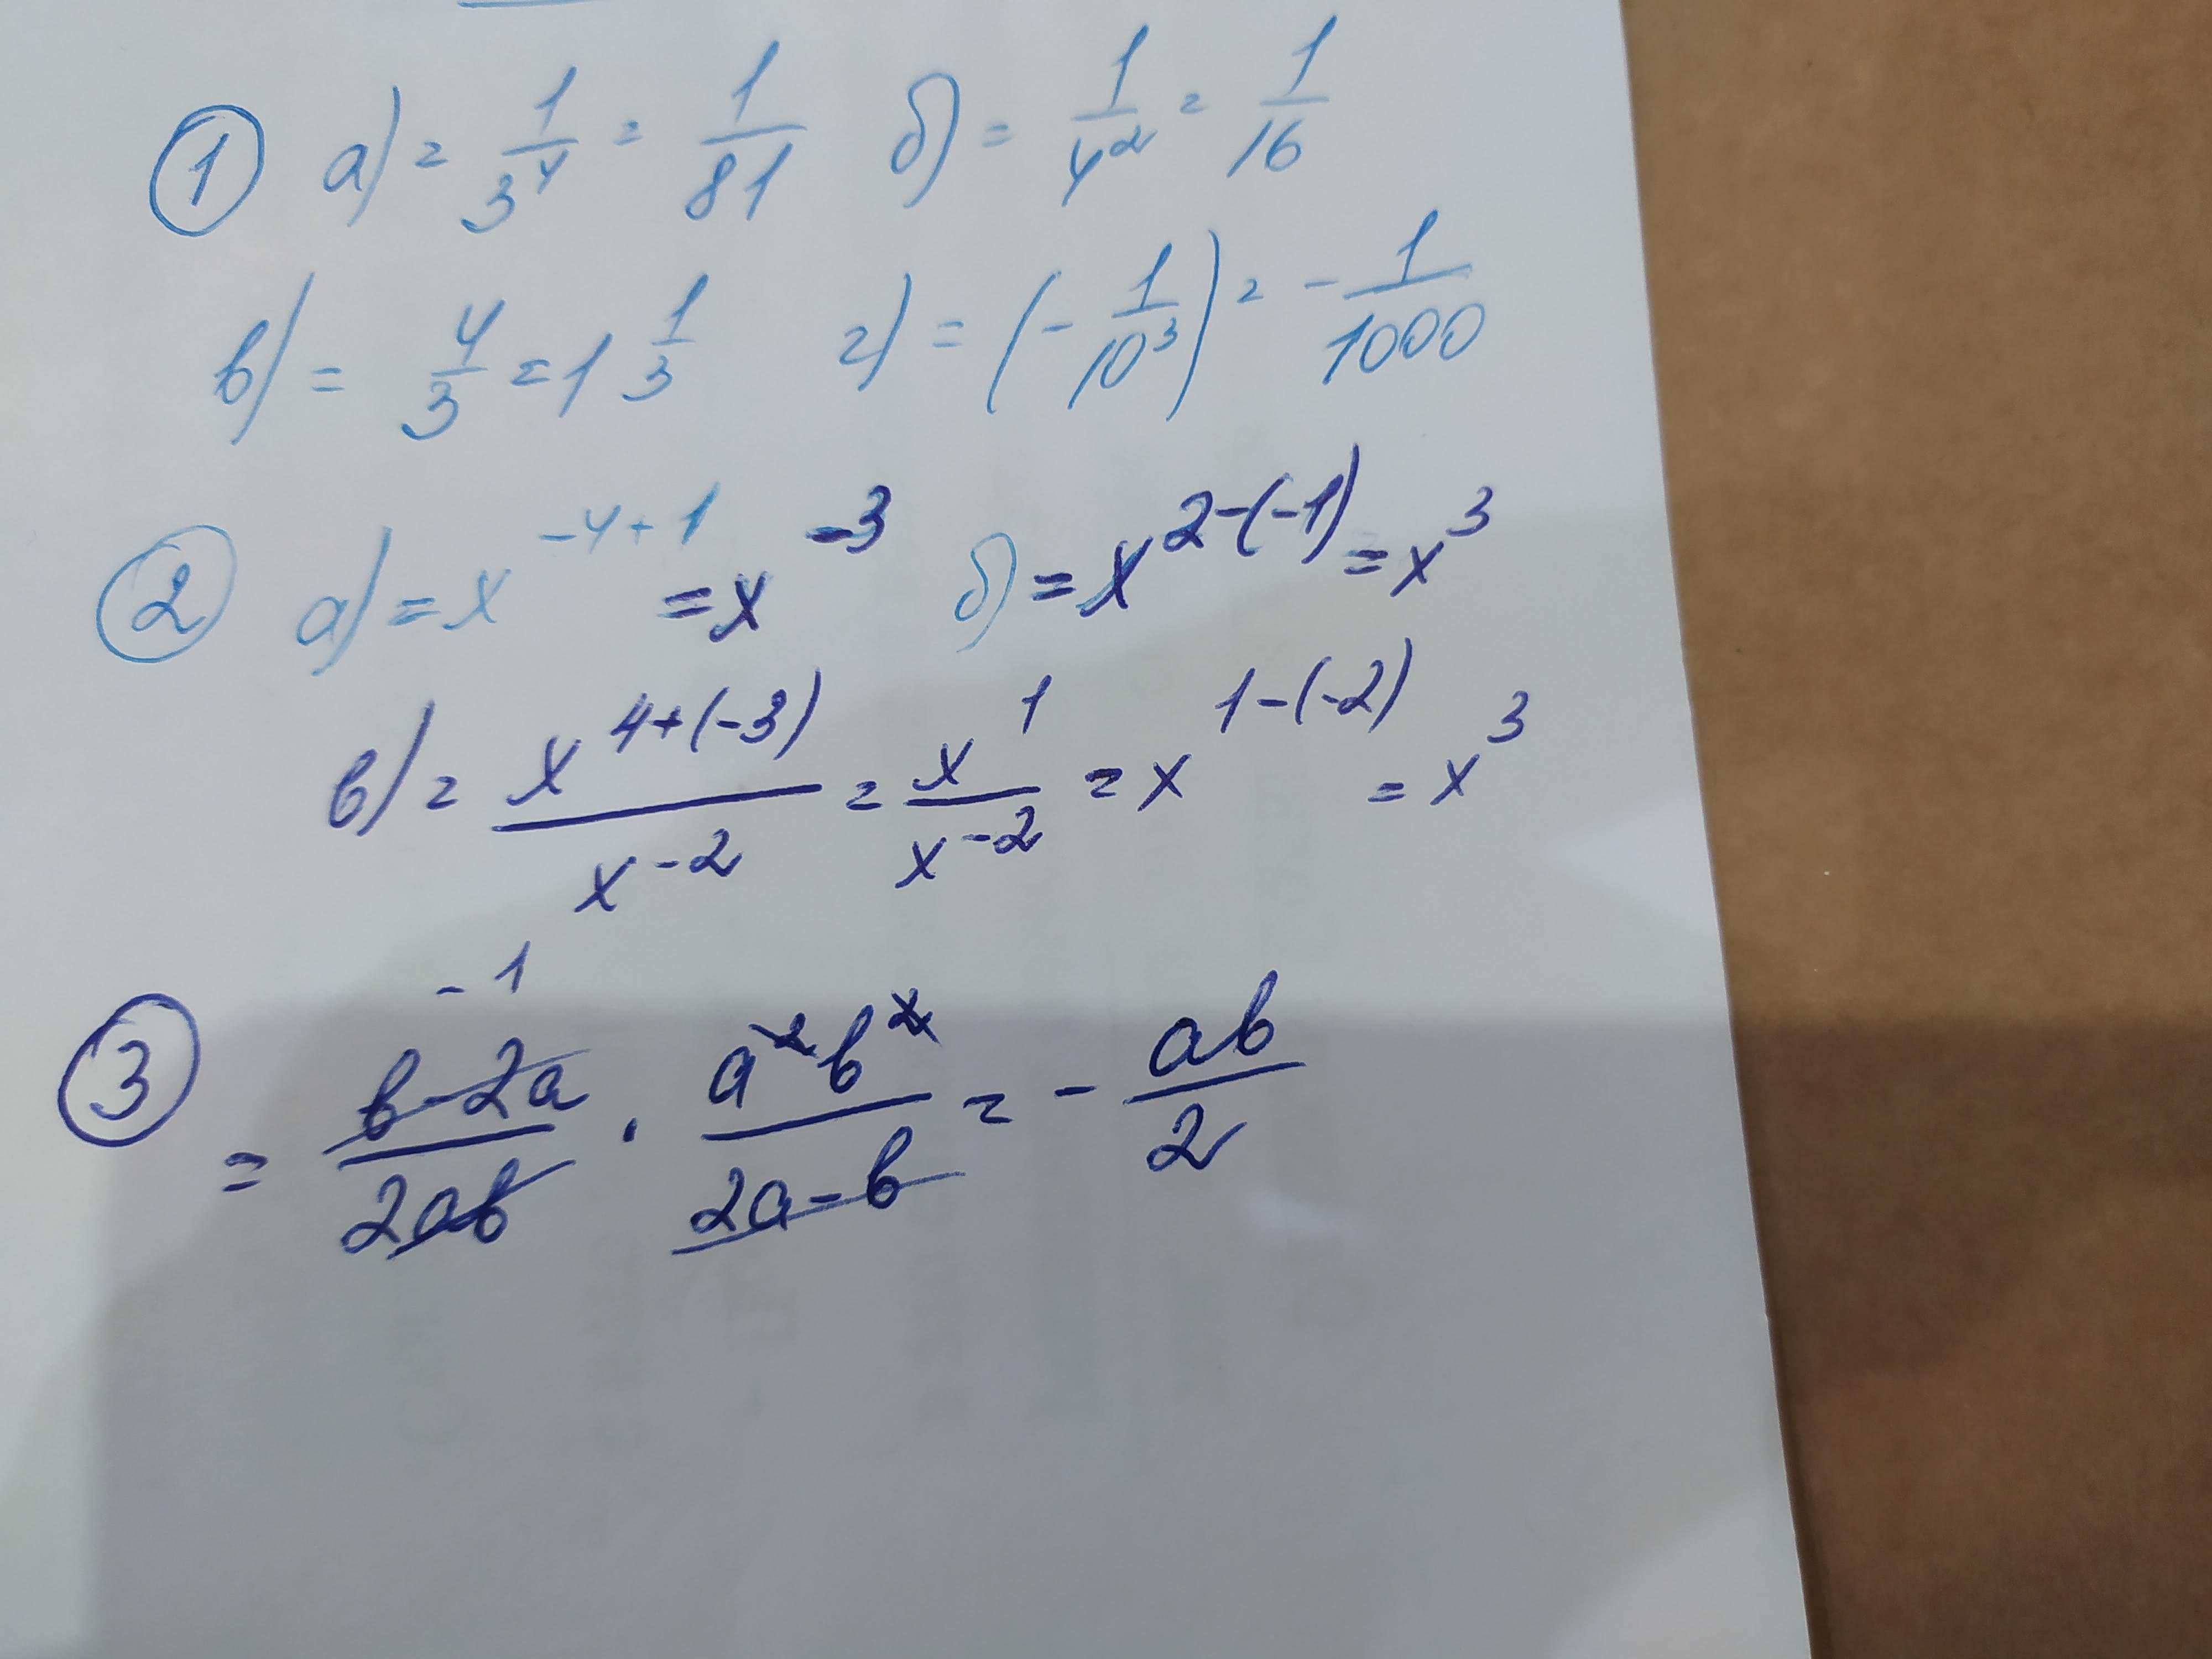 ① а) = 1/3⁴ = 1/81 б) = 1/4² = 1/16
в) = 4/3 = 1 1/3 г) = (- 1/10³) = - 1/1000
② а) = x⁻⁴⁺¹ = x⁻³ б) = x²⁻⁽⁻¹⁾ = x³
в) = x⁴⁺⁽⁻³⁾/x⁻² = x¹/x⁻² = x¹⁻⁽⁻²⁾ = x³
-1
③ = b-2a/2ab · a²b²/2a-b = - ab/2